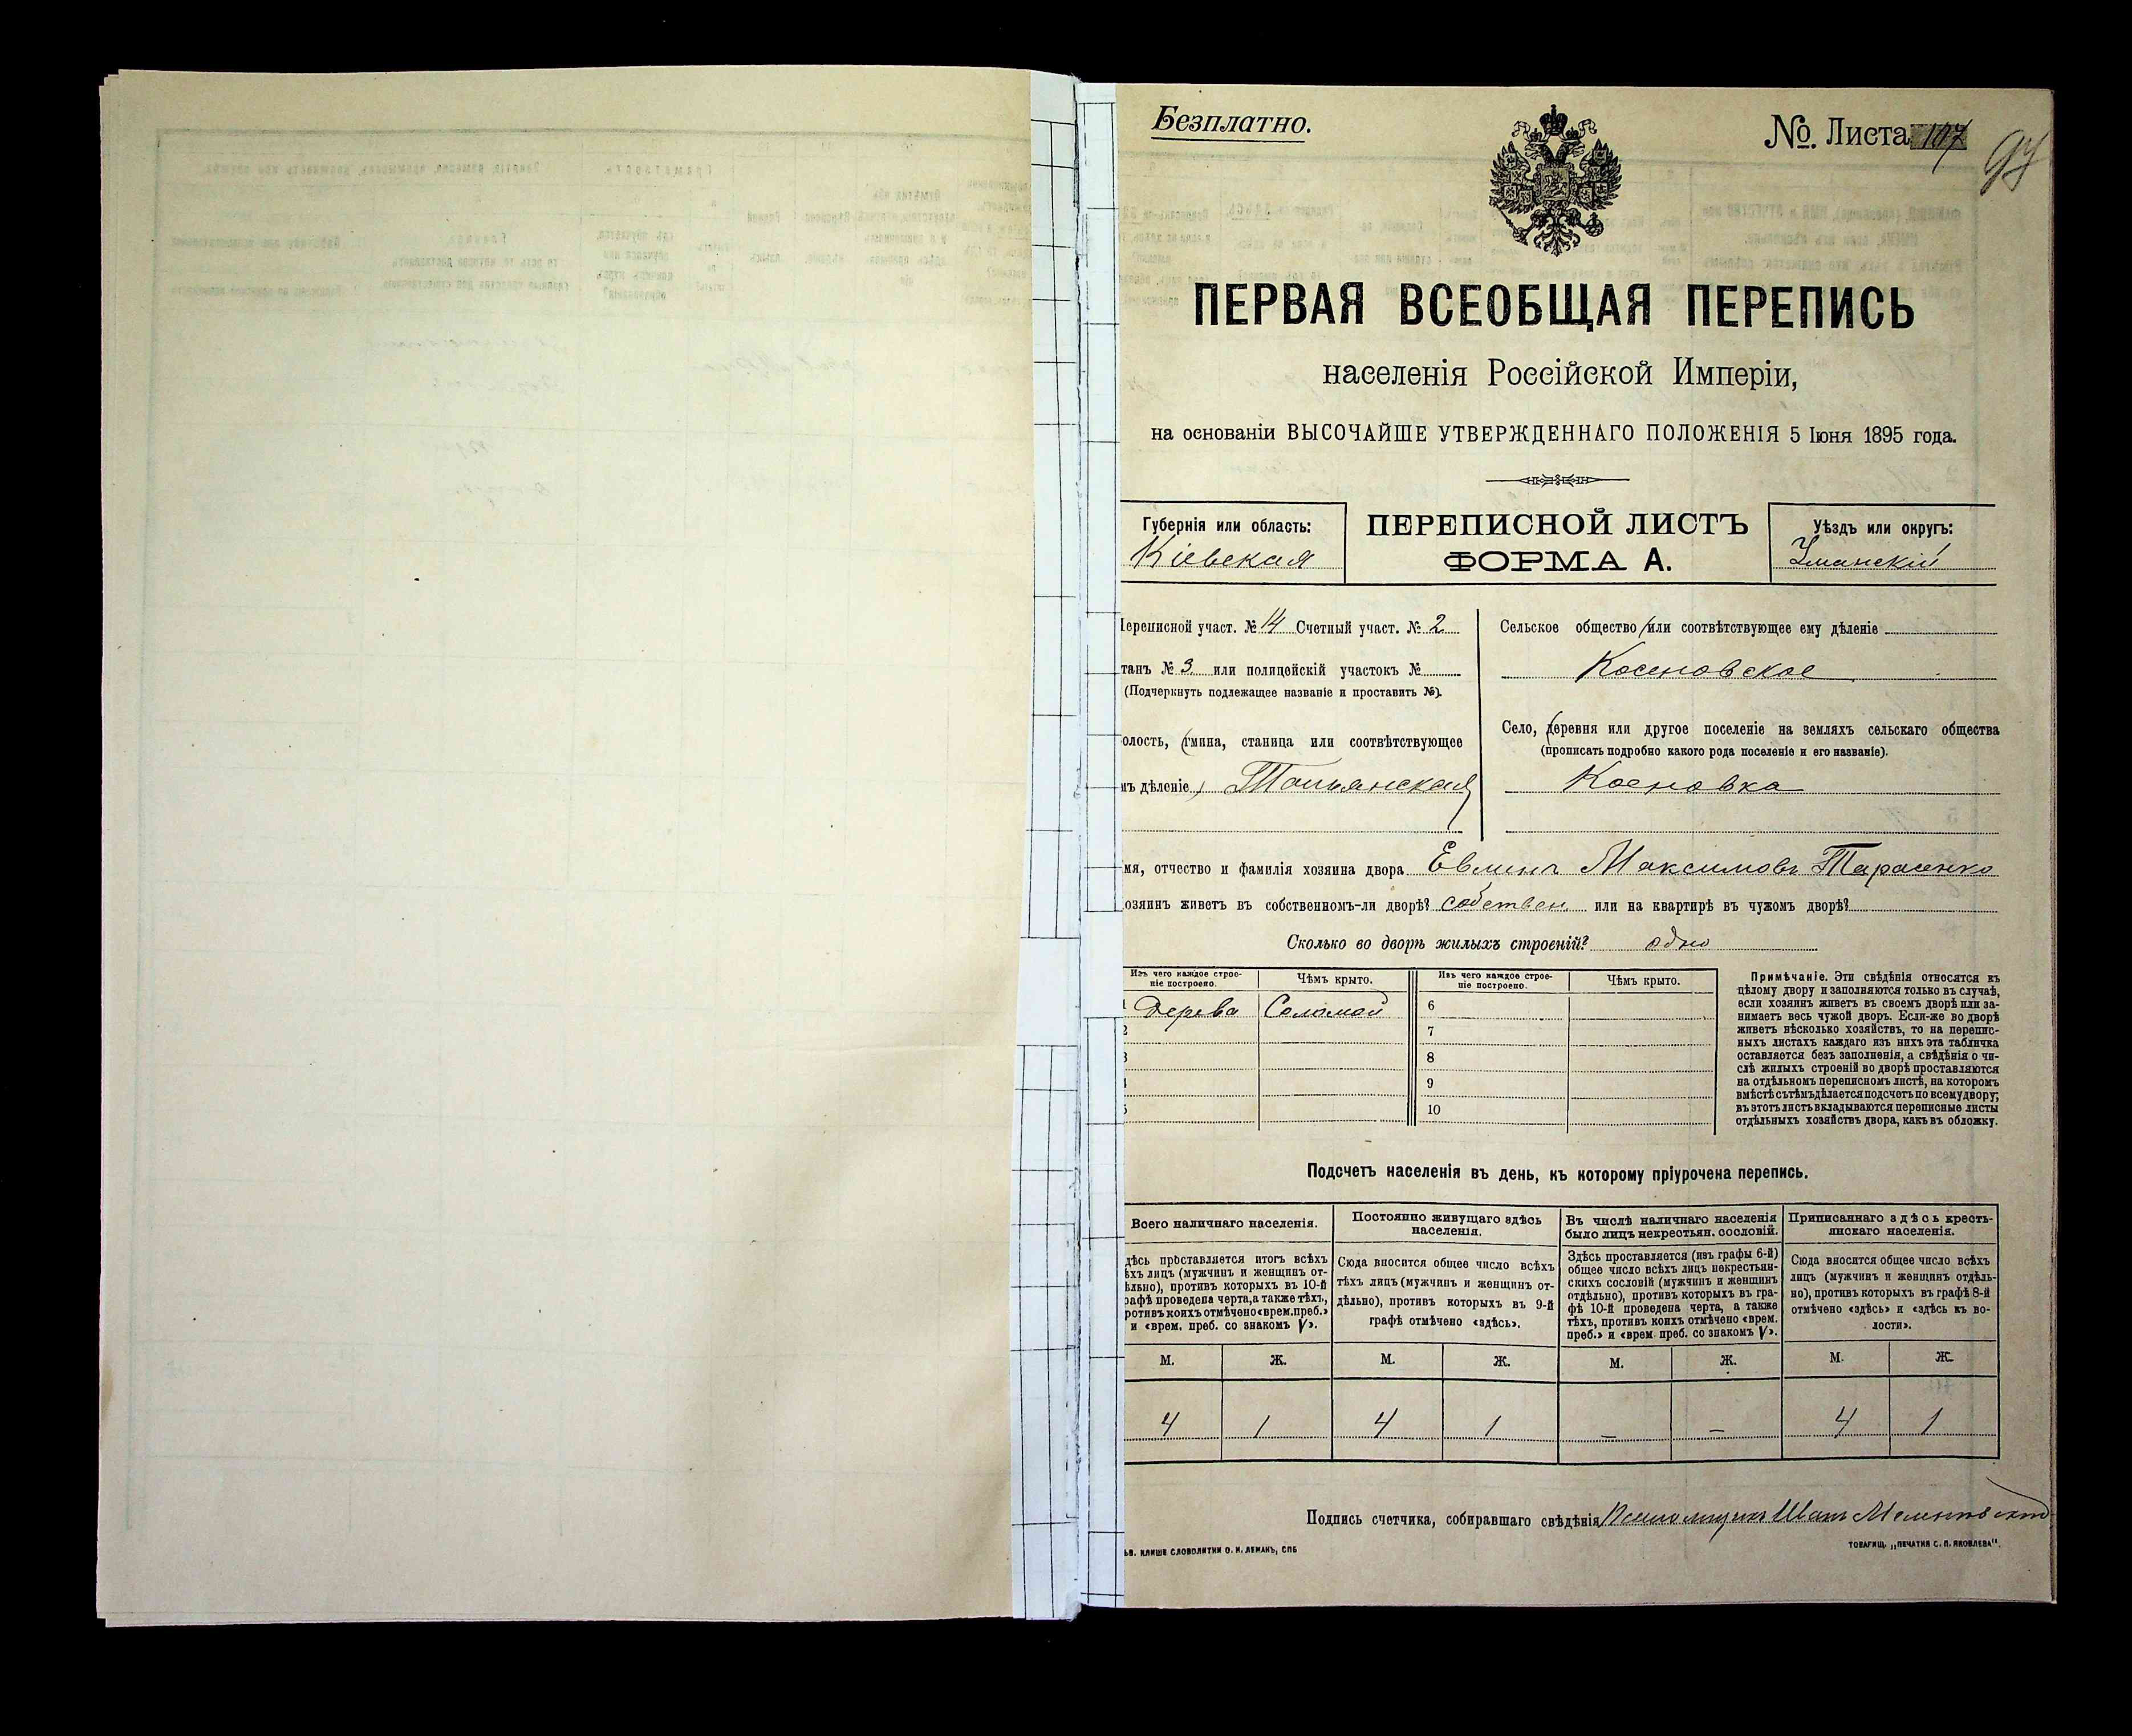 Безплатно.
№. Листа 107
97
ПЕРВАЯ ВСЕОБЩАЯ ПЕРЕПИСЬ
населенія Россійской Имперіи,
на основаніи ВЫСОЧАЙШЕ УТВЕРЖДЕННАГО ПОЛОЖЕНІЯ 5 Іюня 1895 года.
Губернія или область:
Кіевская
ПЕРЕПИСНОЙ ЛИСТЪ
ФОРМА А.
Уѣздъ или округъ:
Уманскій
Переписной участ. № 14 Счетный участ. № 2
танъ № 3 или полицейскій участокъ №
(Подчеркнуть подлежащее названіе и проставить №).
олость, (гмина, станица или соотвѣтствующее
мъ дѣленіе) Тальянская
Сельское общество (или соотвѣтствующее ему дѣленіе
Косеновское
Село, (деревня или другое поселеніе на земляхъ сельскаго общества
(прописать подробно какого рода поселеніе и его названіе).
Косеновка
мя, отчество и фамилія хозяина двора Максимовъ Тарасенко
озяинъ живетъ въ собственномъ-ли дворѣ? собствен. или на квартирѣ въ чужомъ дворѣ?
Сколько во дворѣ жилыхъ строеній? одно
Изъ чего каждое строе-
ніе построено.
Чѣмъ крыто.
Изъ чего каждое строе-
ніе построено.
Чѣмъ крыто.
1 Дерева Соломой
2
3
4
5
6
7
8
9
10
Примѣчаніе. Эти свѣдѣнія относятся къ
цѣлому двору и заполняются только въ случаѣ,
если хозяинъ живетъ въ своемъ дворѣ или за-
нимаетъ весь чужой дворъ. Если-же во дворѣ
живетъ нѣсколько хозяйствъ, то на перепис-
ныхъ листахъ каждаго изъ нихъ эта табличка
оставляется безъ заполненія, а свѣдѣнія о чи-
слѣ жилыхъ строеній во дворѣ проставляются
на отдѣльномъ переписномъ листѣ, на которомъ
вмѣстѣ съ тѣмъ дѣлается подсчетъ по всему двору;
въ этотъ листъ вкладываются переписные листы
отдѣльныхъ хозяйствъ двора, какъ въ обложку.
Подсчетъ населенія въ день, къ которому пріурочена перепись.
Всего наличнаго населенія.
дѣсь проставляется итогъ всѣхъ
ѣхъ лицъ (мужчинъ и женщинъ от-
ѣльно), противъ которыхъ въ 10-й
рафѣ проведена черта, а также тѣхъ,
ротивъ коихъ отмѣчено «врем. преб.»
и «врем. преб. со знакомъ V».
Постоянно живущаго здѣсь
населенія.
Сюда вносится общее число всѣхъ
тѣхъ лицъ (мужчинъ и женщинъ от-
дѣльно), противъ которыхъ въ 9-й
графѣ отмѣчено «здѣсь».
Въ числѣ наличнаго населенія
было лицъ некрестьян. сословій.
Здѣсь проставляется (изъ графы 6-й)
общее число всѣхъ лицъ некрестьян-
скихъ сословій (мужчинъ и женщинъ
отдѣльно), противъ которыхъ въ гра-
фѣ 10-й проведена черта, а также
тѣхъ, противъ коихъ отмѣчено «врем.
преб.» и «врем. преб. со знакомъ V».
Приписаннаго здѣсь кресть-
янскаго населенія.
Сюда вносится общее число всѣхъ
лицъ (мужчинъ и женщинъ отдѣль-
но), противъ которыхъ въ графѣ 8-й
отмѣчено «здѣсь» и «здѣсь въ во-
лости».
М. Ж. М. Ж. М. Ж. М. Ж.
4 1 4 1 — — 4 1
Подпись счетчика, собиравшаго свѣдѣнія
ыв. клише словолитни О. И. Леманъ, СПБ
Товарищ. „Печатня С. П. Яковлева".